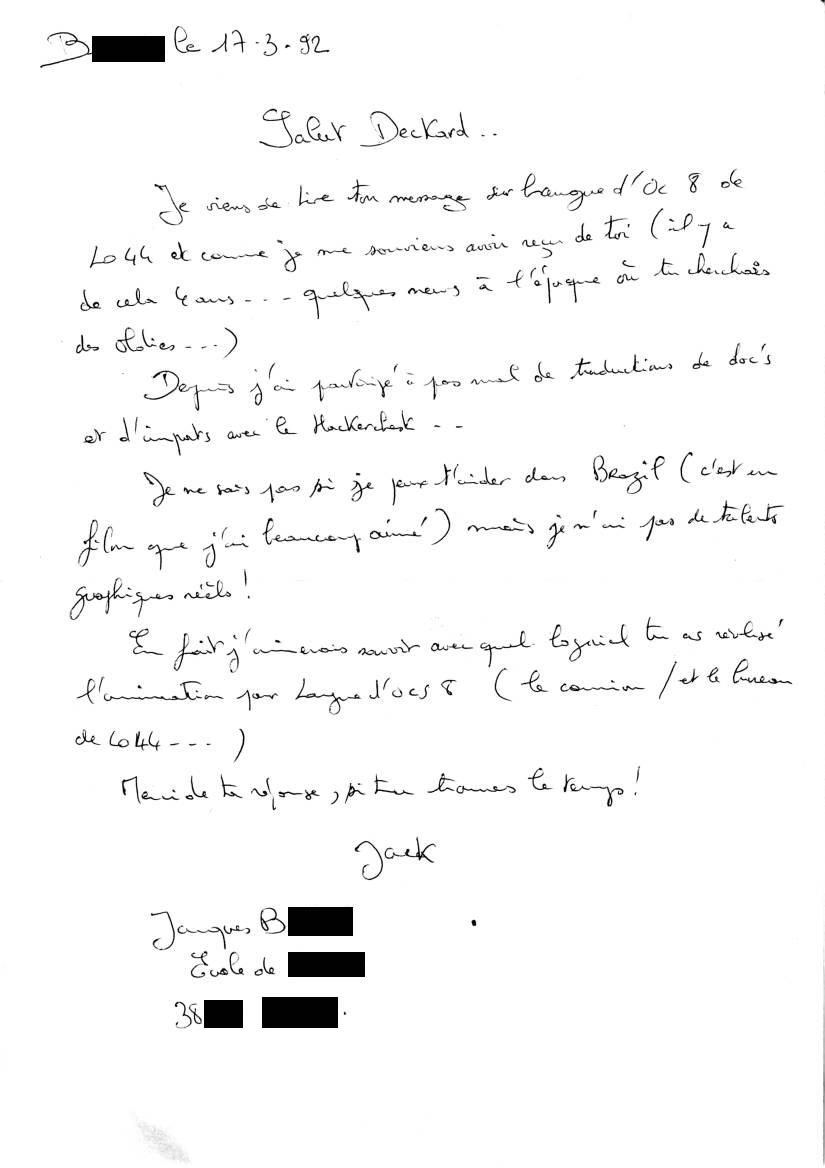 B le 17.3.92
Salut Deckard..
Je viens de lire ton message sur Langue d'Oc 8 de
LO44 et comme je me souviens avoir reçu de toi (il y a
de cela 4 ans --- quelques news à l'époque où tu cherchais
des oldies ---)
Depuis j'ai participé à pas mal de traductions de doc's
et d'imports avec le Hackerchest --
Je ne sais pas si je peux t'aider dans Brazil (c'est un
film que j'ai beaucoup aimé) mais je n'ai pas de talents
graphiques réels !
En fait j'aimerais savoir avec quel logiciel tu as réalisé
l'animation par Langue d'ocs 8 (le camion / et le bureau
de LO44 --- )
Merci de ta réponse, si tu trouves le temps !
Jack
Jacques B
École de
38